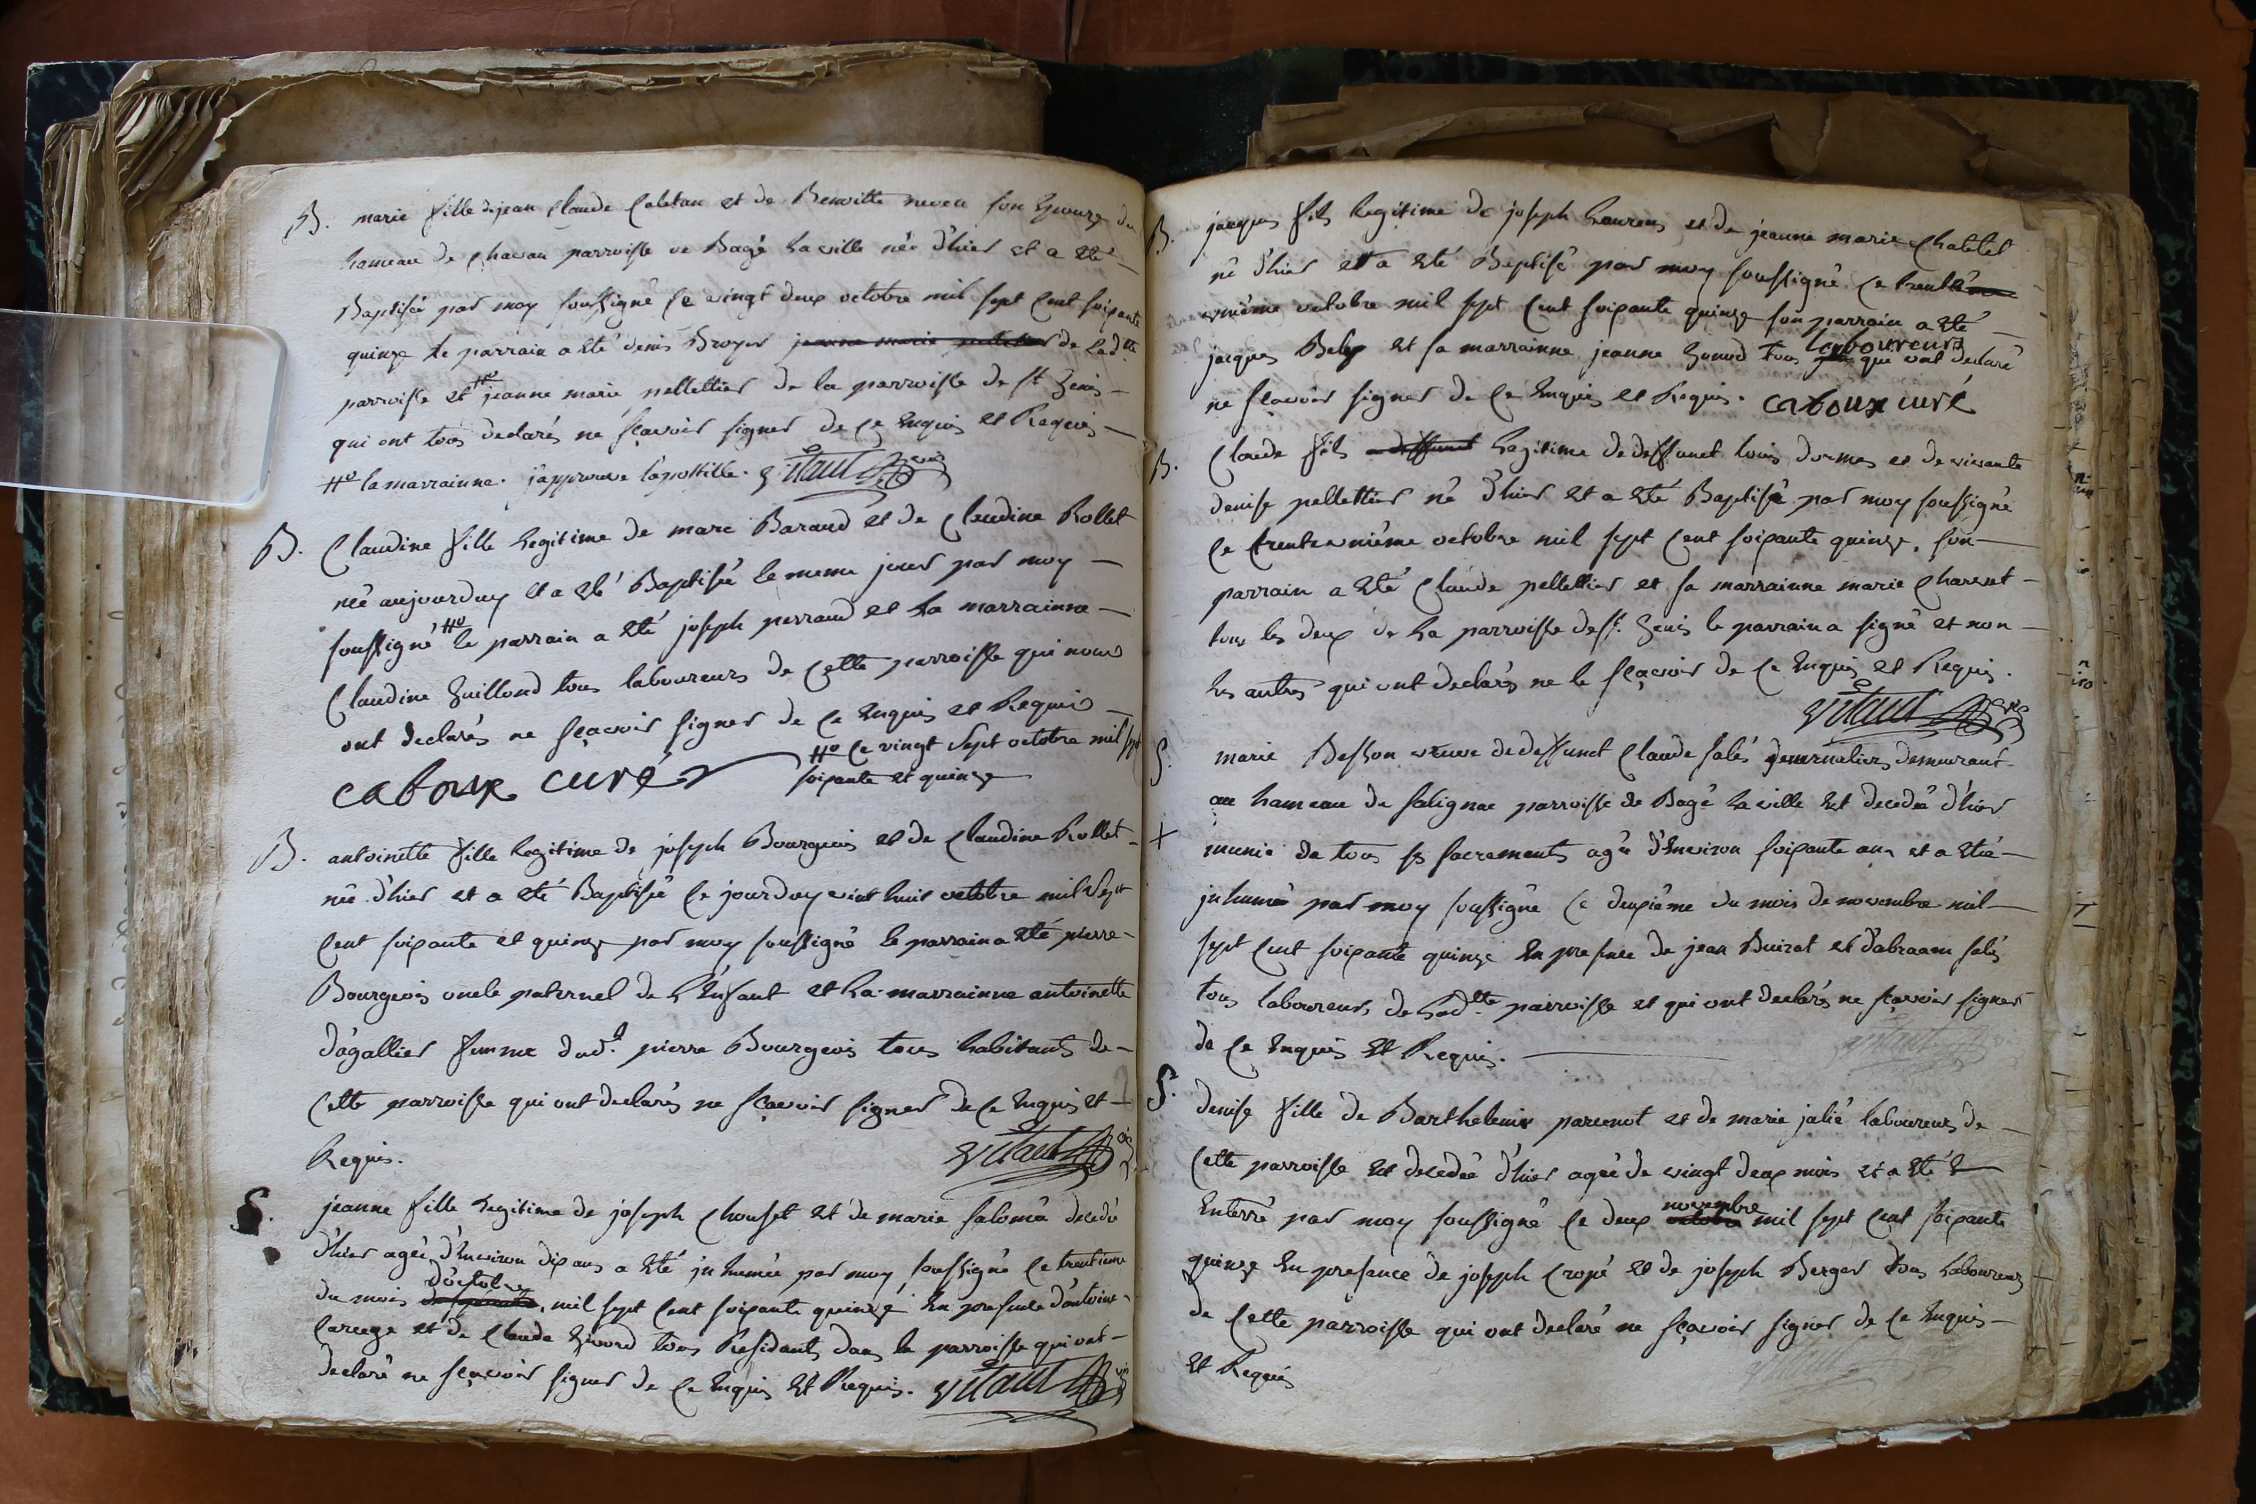 B. marie fille de jean Claude Cateland et de Benoitte neveu son Epouze du
hameau de Chavan parroisse de Bagé la ville née d'hier et a eté
Baptisée par moy soussigné ce vingt deux octobre mil sept cent soixante
quinze le parrain a eté denis Broyer jeanne marie pelletier de lad.tte
parroisse et jeanne marie pellettier de la parroisse de st Genis
qui ont tous declarés ne sçavoir signer de ce Enquis et Requis
la marrainne. j'approuve l'apostille. vitaut vic
B. Claudine fille Legitime de marc Baraud et de Claudine Rollet
née aujourduy et a eté Baptisée le meme jour par moy
soussigné le parrain a eté joseph perraud et la marrainne
Claudine Guillond tous laboureurs de Cette parroisse qui nous
ont declarés ne sçavoir signer de ce Enquis et Requis
ce vingt sept octobre mil sept
caboux curé soixante et quinze
B. antoinette fille Legitime de joseph Bourgeois et de Claudine Rollet
née d'hier et a eté Baptisée ce jourduy vint huit octobre mil sept
Cent soixante et quinze par moy soussigné le parrain a eté pierre
Bourgeois oncle paternel de L'Enfant et La marrainne antoinette
dagallier femme dud. pierre Bourgeois tous habitants de
Cette parroisse qui ont declarés ne sçavoir signer de ce Enquis et
Requis. vitaut vic
S. jeanne fille Legitime de joseph Chouset et de marie salomé decedé
d'hier ageé d'Environ dix ans a eté jnhumée par moy soussigné ce trentieme
d'octobre
du mois mil sept cent soixante quinze En presence d'antoine
Carrege et de Claude Genord tous Residants dans la parroisse qui ont
declaré ne sçavoir signer de ce Enquis et Requis. vitaut vic
B. jacques fils Legitime de joseph Laurens et de jeanne marie Chatelet
né d'hier et a eté Baptisé par moy soussigné ce trente
unième octobre mil sept cent soixante quinze son parrain a eté
laboureurs
jacques Beley et sa marrainne jeanne Genord tous qui ont declaré
ne sçavoir signer de ce Enquis et Requis. caboux curé
B. Claude fils deffunct Legitime de deffunct louis dormes et de vivante
denise pellettier né d'hier et a eté Baptisé par moy soussigné
ce trente unième octobre mil sept cent soixante quinze, son
parrain a eté Claude pellettier et sa marrainne marie Charvet
tous les deux de La parroisse de st. Genis le parrain a signé et non
les autres qui ont declarés ne le sçavoir de ce Enquis et Requis.
vitaut vic
S. marie Besson veuve de deffunct Claude salés journaliers demeurant
au hameau de salignac parroisse de Bagé La ville est decedée d'hier
munie de tous ses sacrements ageé d'Environ soixante ans et a eté
jnhumée par moy soussigné ce deuxième du mois de novembre mil
sept cent soixante quinze En presence de jean Buirat et d'abraam salés
tous laboureurs de Lad.tte parroisse et qui ont declarés ne sçavoir signer
de ce Enquis et Requis. vitaut
S. denise fille de Barthelemie parcenot et de marie jalié laboureurs de
Cette parroisse est decedée d'hier ageé de vingt deux mois et a eté
novembre
Enterré par moy soussigné ce deux octobre mil sept cent soixante
quinze En presence de joseph Cropé et de joseph Berger tous laboureurs
de Cette parroisse qui ont declaré ne sçavoir signer de ce Enquis
et Requis